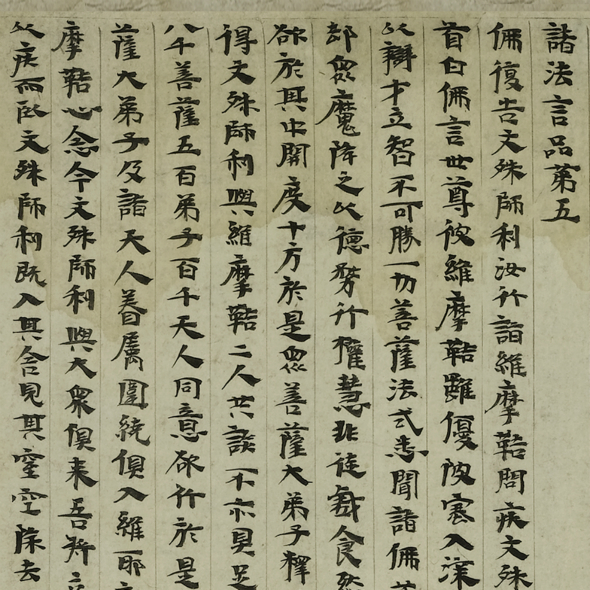 諸法言品第五
佛復告文殊師利汝行詣維摩鞊問疾文殊
首白佛言世尊彼維摩鞊雖優波塞入深
以辯才立智不可勝一切菩薩法式悉聞諸佛
部眾魔降之以德務行權慧非徒戲食然
欲於其中開度十方於是眾菩薩大弟子釋
得文殊師利與維摩鞊二人共談不亦具足
八千菩薩五百弟子百千天人同意欲行於是
薩大弟子及諸天人眷屬圍繞俱入維耶
摩鞊心念今文殊師利與大眾俱來吾將
以疾而臥文殊師利既入其舍見其室空除去